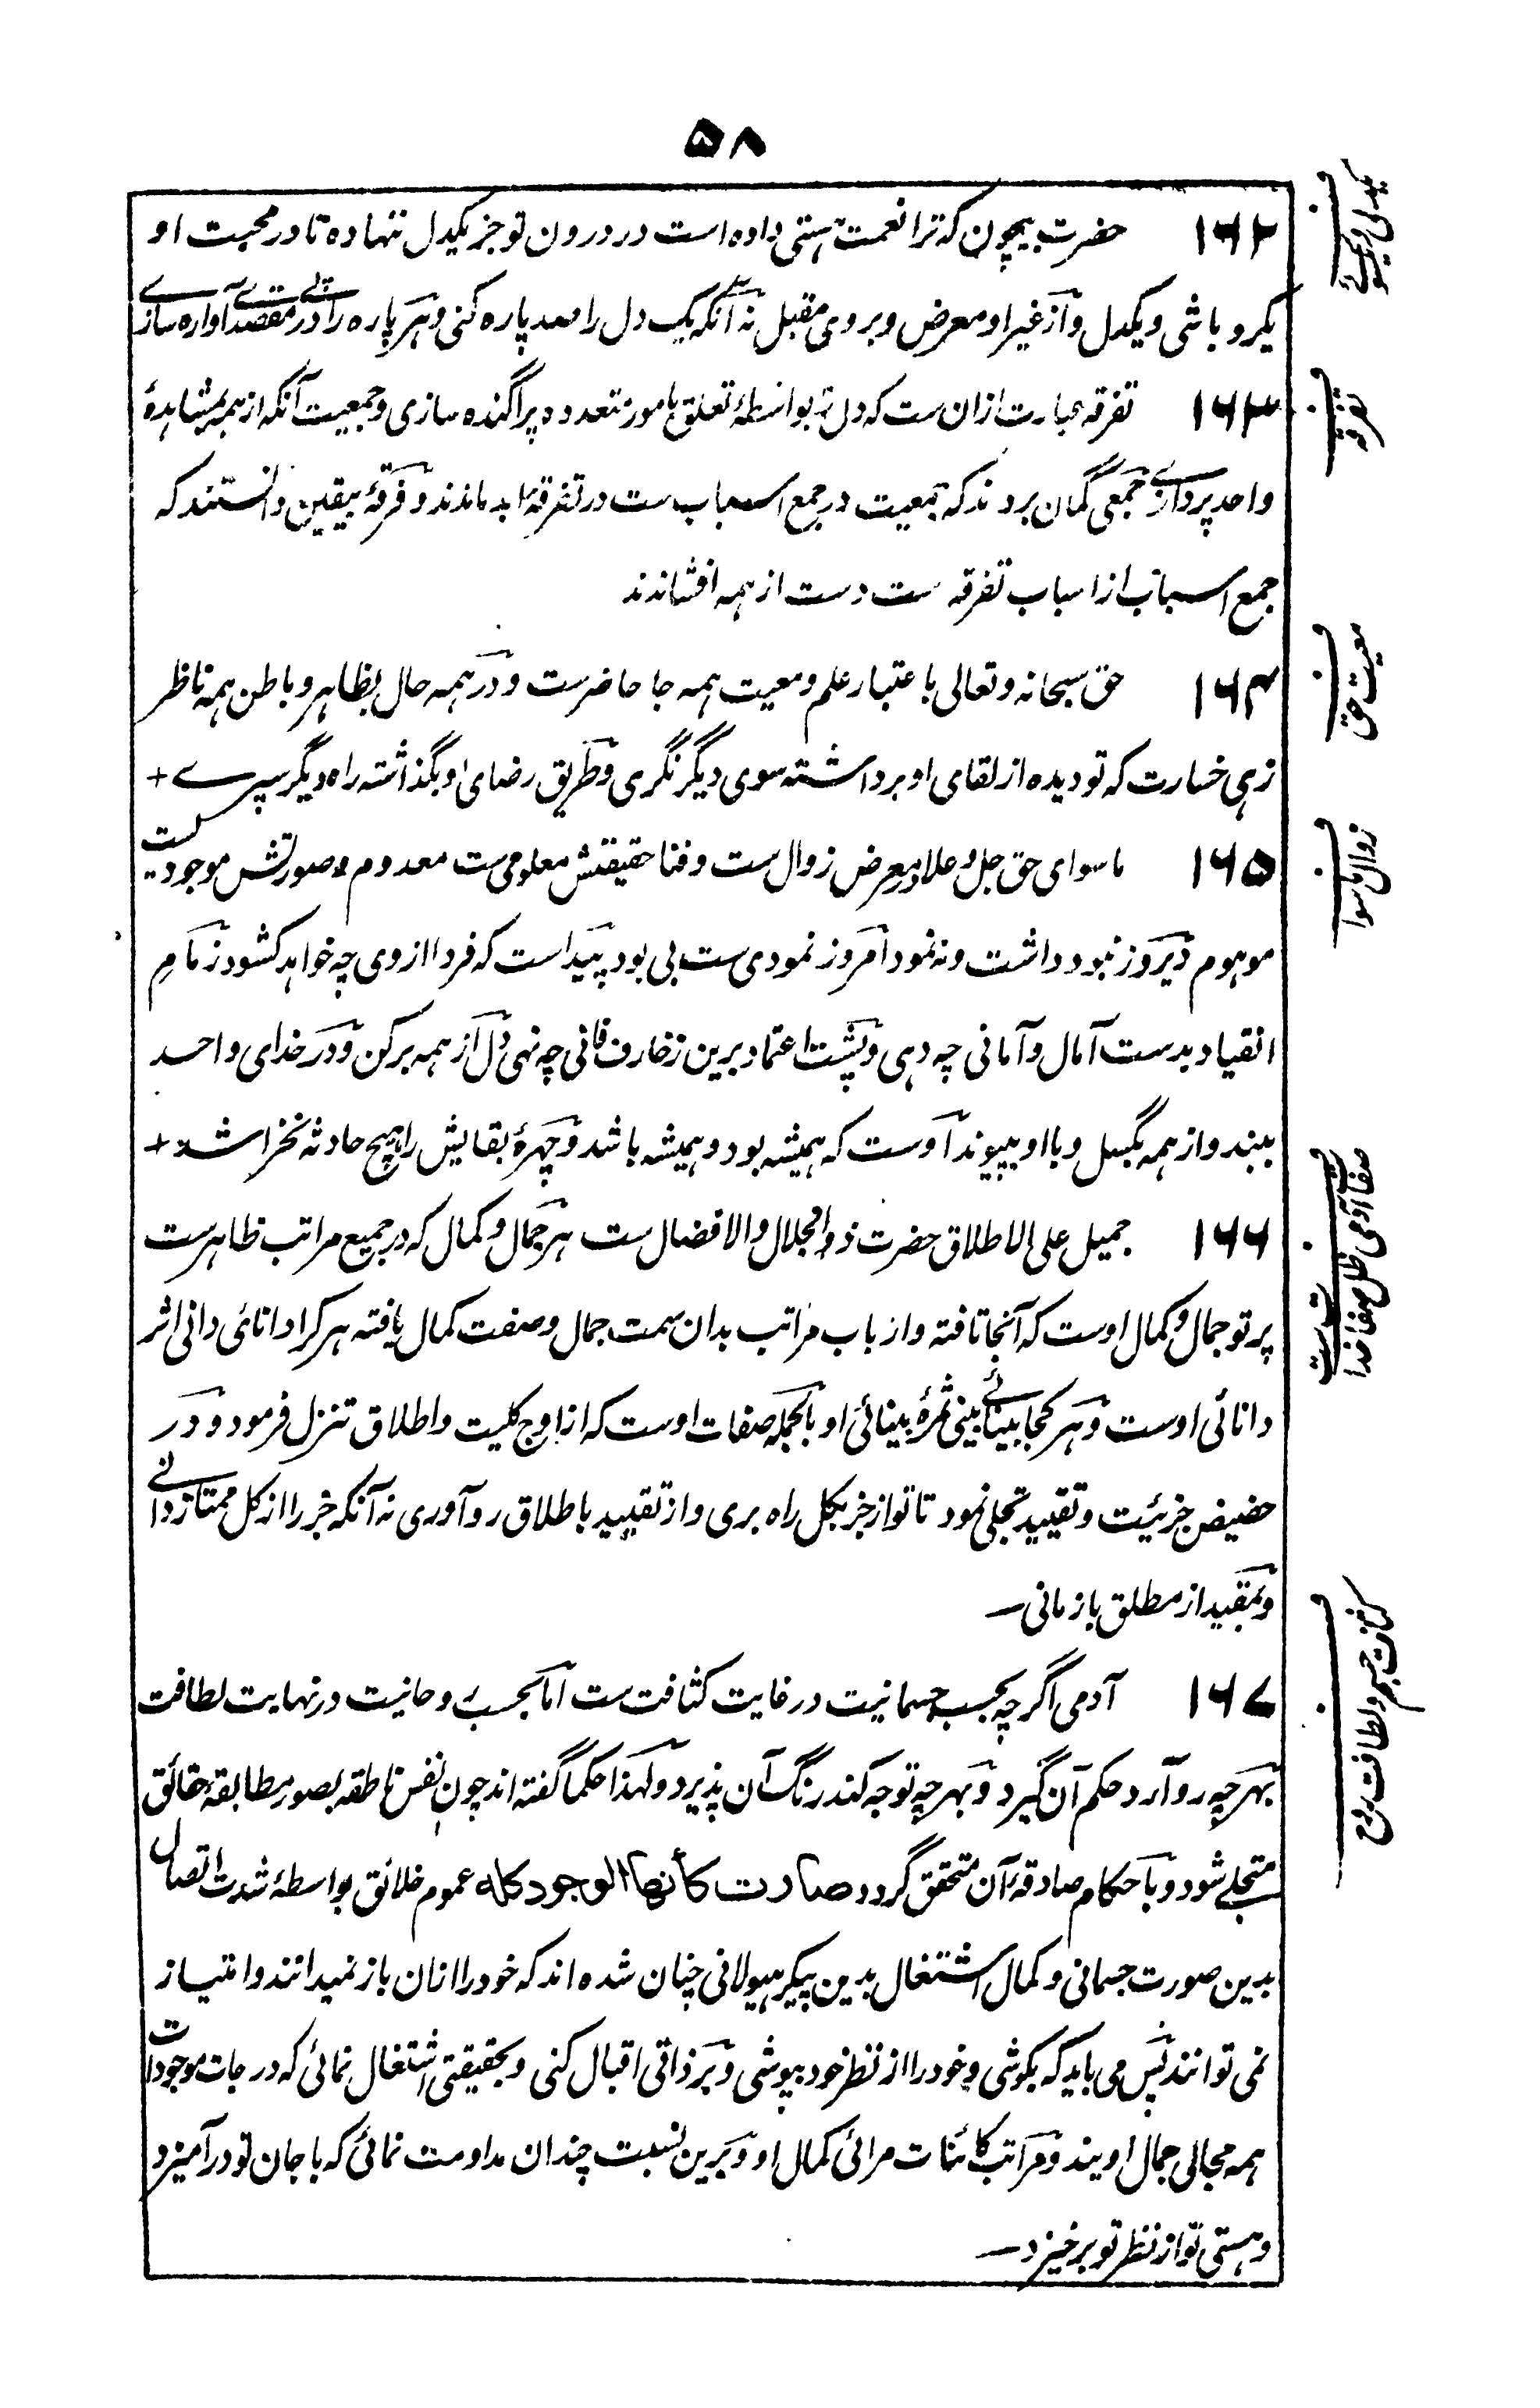 ۵۸
۱۶۲ حضرت بیچون که ترا نعمت هستی داده است در درون تو جز یکدل ننهاده تا در محبت او
یکرو باشی و یکدل و از غیر او معرض و بروی مقبل نه آنکه یک دل را صد پاره کنی و هر پاره را در پی مقصدی آواره سازے
۱۶۳ تفرقه عبارت ازان ست که دل را بواسطۀ تعلق بامور متعدده پراگنده سازی و جمعیت آنکه از همه بمشاهدۀ
واحد پردازے جمعی گمان بردند که جمعیت در جمع اسباب ست در تفرقۀ ابد ماندند و فرقۀ بیقین دانستند که
جمع اسباب از اسباب تفرقه ست دست از همه افشاندند
۱۶۴ حق سبحانه و تعالی باعتبار علم و معیت همه جا حاضرست و در همه حال بظاهر و باطن همه ناظر
زهی خسارت که تو دیده از لقای او برداشته سوی دیگر نگری و طریق رضای او بگذاشته راه دیگر سپرے +
۱۶۵ ماسوای حق جل و علا در معرض زوال ست و فنا حقیقتش معلومی ست معدوم و صورتش موجودیست
موهوم دیروز نه بود داشت و نه نمود امروز نمودی ست بی بود پیداست که فردا از وی چه خواهد کشود زمام
انقیاد بدست آمال و آمانی چه دهی و پشت اعتماد برین زخارف فانی چه نهی دل از همه برکن و در خدای واحد
ببند و از همه بگسل و با او بپیوند اوست که همیشه بود و همیشه باشد و چهرۀ بقایش را هیچ حادثه نخراشد +
۱۶۶ جمیل علی الاطلاق حضرت ذوالجلال والافضال ست هر جمال و کمال که در جمیع مراتب ظاهرست
پرتو جمال و کمال اوست که آنجا تافته و ارباب مراتب بدان سمت جمال و صفت کمال یافته هر کرا دانائی دانی اثر
دانائی اوست و هر کجا بینائے بینی ثمرۀ بینائی او بالجمله صفات اوست که از اوج کلیت و اطلاق تنزل فرموده و در
حضیض جزئیت و تقیید تجلی نموده تا تو از جز بکل راه بری و از تقیید باطلاق رو آوری نه آنکه جز را از کل ممتاز دانے
و بمقید از مطلق باز مانی—
۱۶۷ آدمی اگرچه بحسب جسمانیت در غایت کثافت ست اما بحسب روحانیت در نهایت لطافت
بهر چه رو آرد حکم آن گیرد و بهر چه توجه کند رنگ آن پذیرد و لهذا حکما گفته اند چون نفس ناطقه بصور مطابقۀ حقائق
متجلے شود و باحکام صادقۀ آن متحقق گردد صارت کأنها الوجود کله عموم خلائق بواسطۀ شدت اتصال
بدین صورت جسمانی و کمال اشتغال بدین پیکر هیولانی چنان شده اند که خود را ازان باز نمیدانند و امتیاز
نمی توانند پس می باید که بکوشی و خود را از نظر خود بپوشی و بر ذاتی اقبال کنی و بحقیقتی اشتغال نمائی که درجات موجودات
همه مجالی جمال اویند و مراتب کائنات مرائی کمال او و برین نسبت چندان مداومت نمائی که با جان تو درآمیزد
و هستی تو از نظر تو برخیزد—
ف یکدلی و یکسوئے
ف تفرقه
ف معیت حق
ف زوال ماسوا
ف صفات آدمی ظل صفات خدا است
ف کثافت جسم و لطافت روح